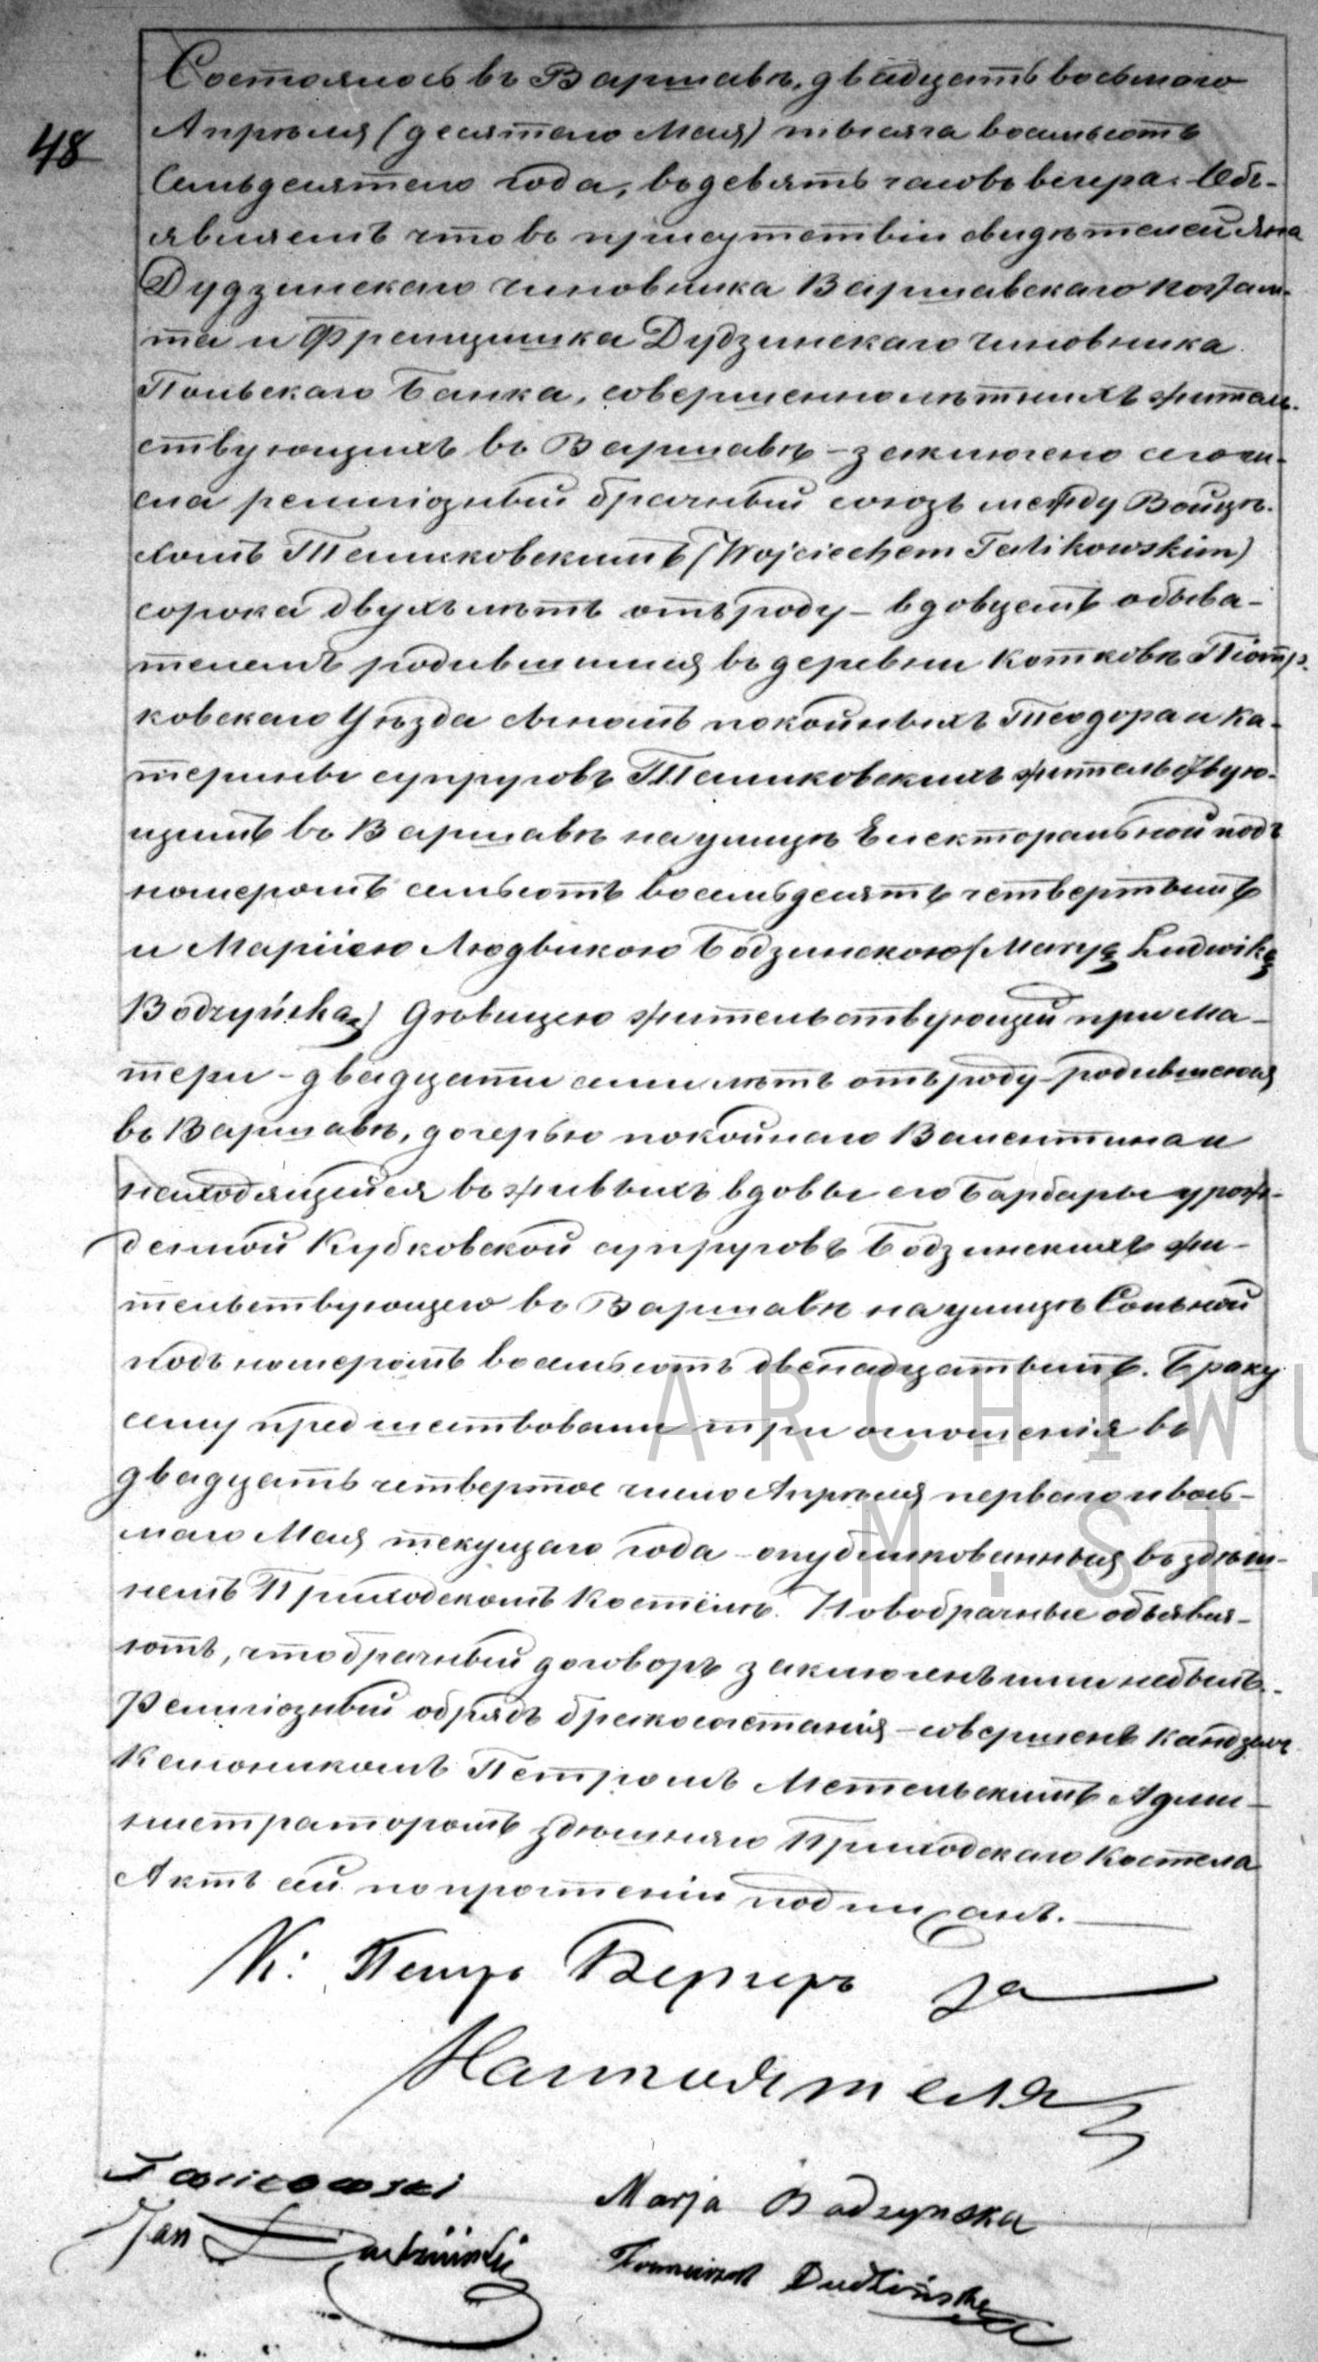 48
Состоялось въ Варшавѣ, двадцать восьмаго
Апрѣля (десятаго Мая) тысяча восемьсотъ
Семьдесятаго года, въ девять часовъ вечера. Объ-
являемъ что въ присутствіи свидѣтелей Яна
Дудзинскаго чиновника Варшавскаго почтам-
та и Францишка Дудзинскаго чиновника
Польскаго Банка, совершеннолѣтнихъ житель-
ствующихъ въ Варшавѣ – заключено сего чи-
сла религіозный брачный союзъ между Войцѣ-
хомъ Таликовскимъ (Wojciechem Talikowskim)
сорока двухъ лѣтъ отъ роду – вдовцемъ обыва-
телемъ родившимся въ деревни Котковѣ Піотр-
ковскаго Уѣзда сыномъ покойныхъ Теодора и Ка-
терины супруговъ Таликовскихъ жительствую-
щимъ въ Варшавѣ на улицѣ Електоральной подъ
номеромъ семьсотъ восемьдесятъ четвертымъ
и Маріею Людвикою Бодзинскою (Maryą Ludwiką
Bodzyńską) дѣвицею жительствующей при ма-
тери – двадцати семи лѣтъ отъ роду – родившеюся
въ Варшавѣ, дочерью покойнаго Валентина и
находящейся въ живыхъ вдовы его Барбары урож-
денной Кубковской супруговъ Бодзинскихъ жи-
тельствующею въ Варшавѣ на улицѣ Сольной
подъ номеромъ восемьсотъ двенадцатымъ. Браку
сему предшествовали три оглошенія въ
двадцать четвертое число Апрѣля перваго и вось-
маго Мая текущаго года – опубликованныя въ здѣш-
немъ Приходскомъ Костёлѣ. Новобрачные объявля-
ютъ, что брачный договоръ заключенъ ими небылъ.
Религіозный обрядъ бракосочетанія – совершенъ Ксендзомъ
Каноникомъ Петромъ Метельскимъ Адми-
нистраторомъ здѣшняго Приходскаго Костела
Актъ сей по прочтеніи подписанъ.
К: Петръ Бергеръ за
Настоятеля
Talikowski Marja Bodzynska
Jan Dudziński Franciszek Dudziński
ARCHIWU
M. ST.